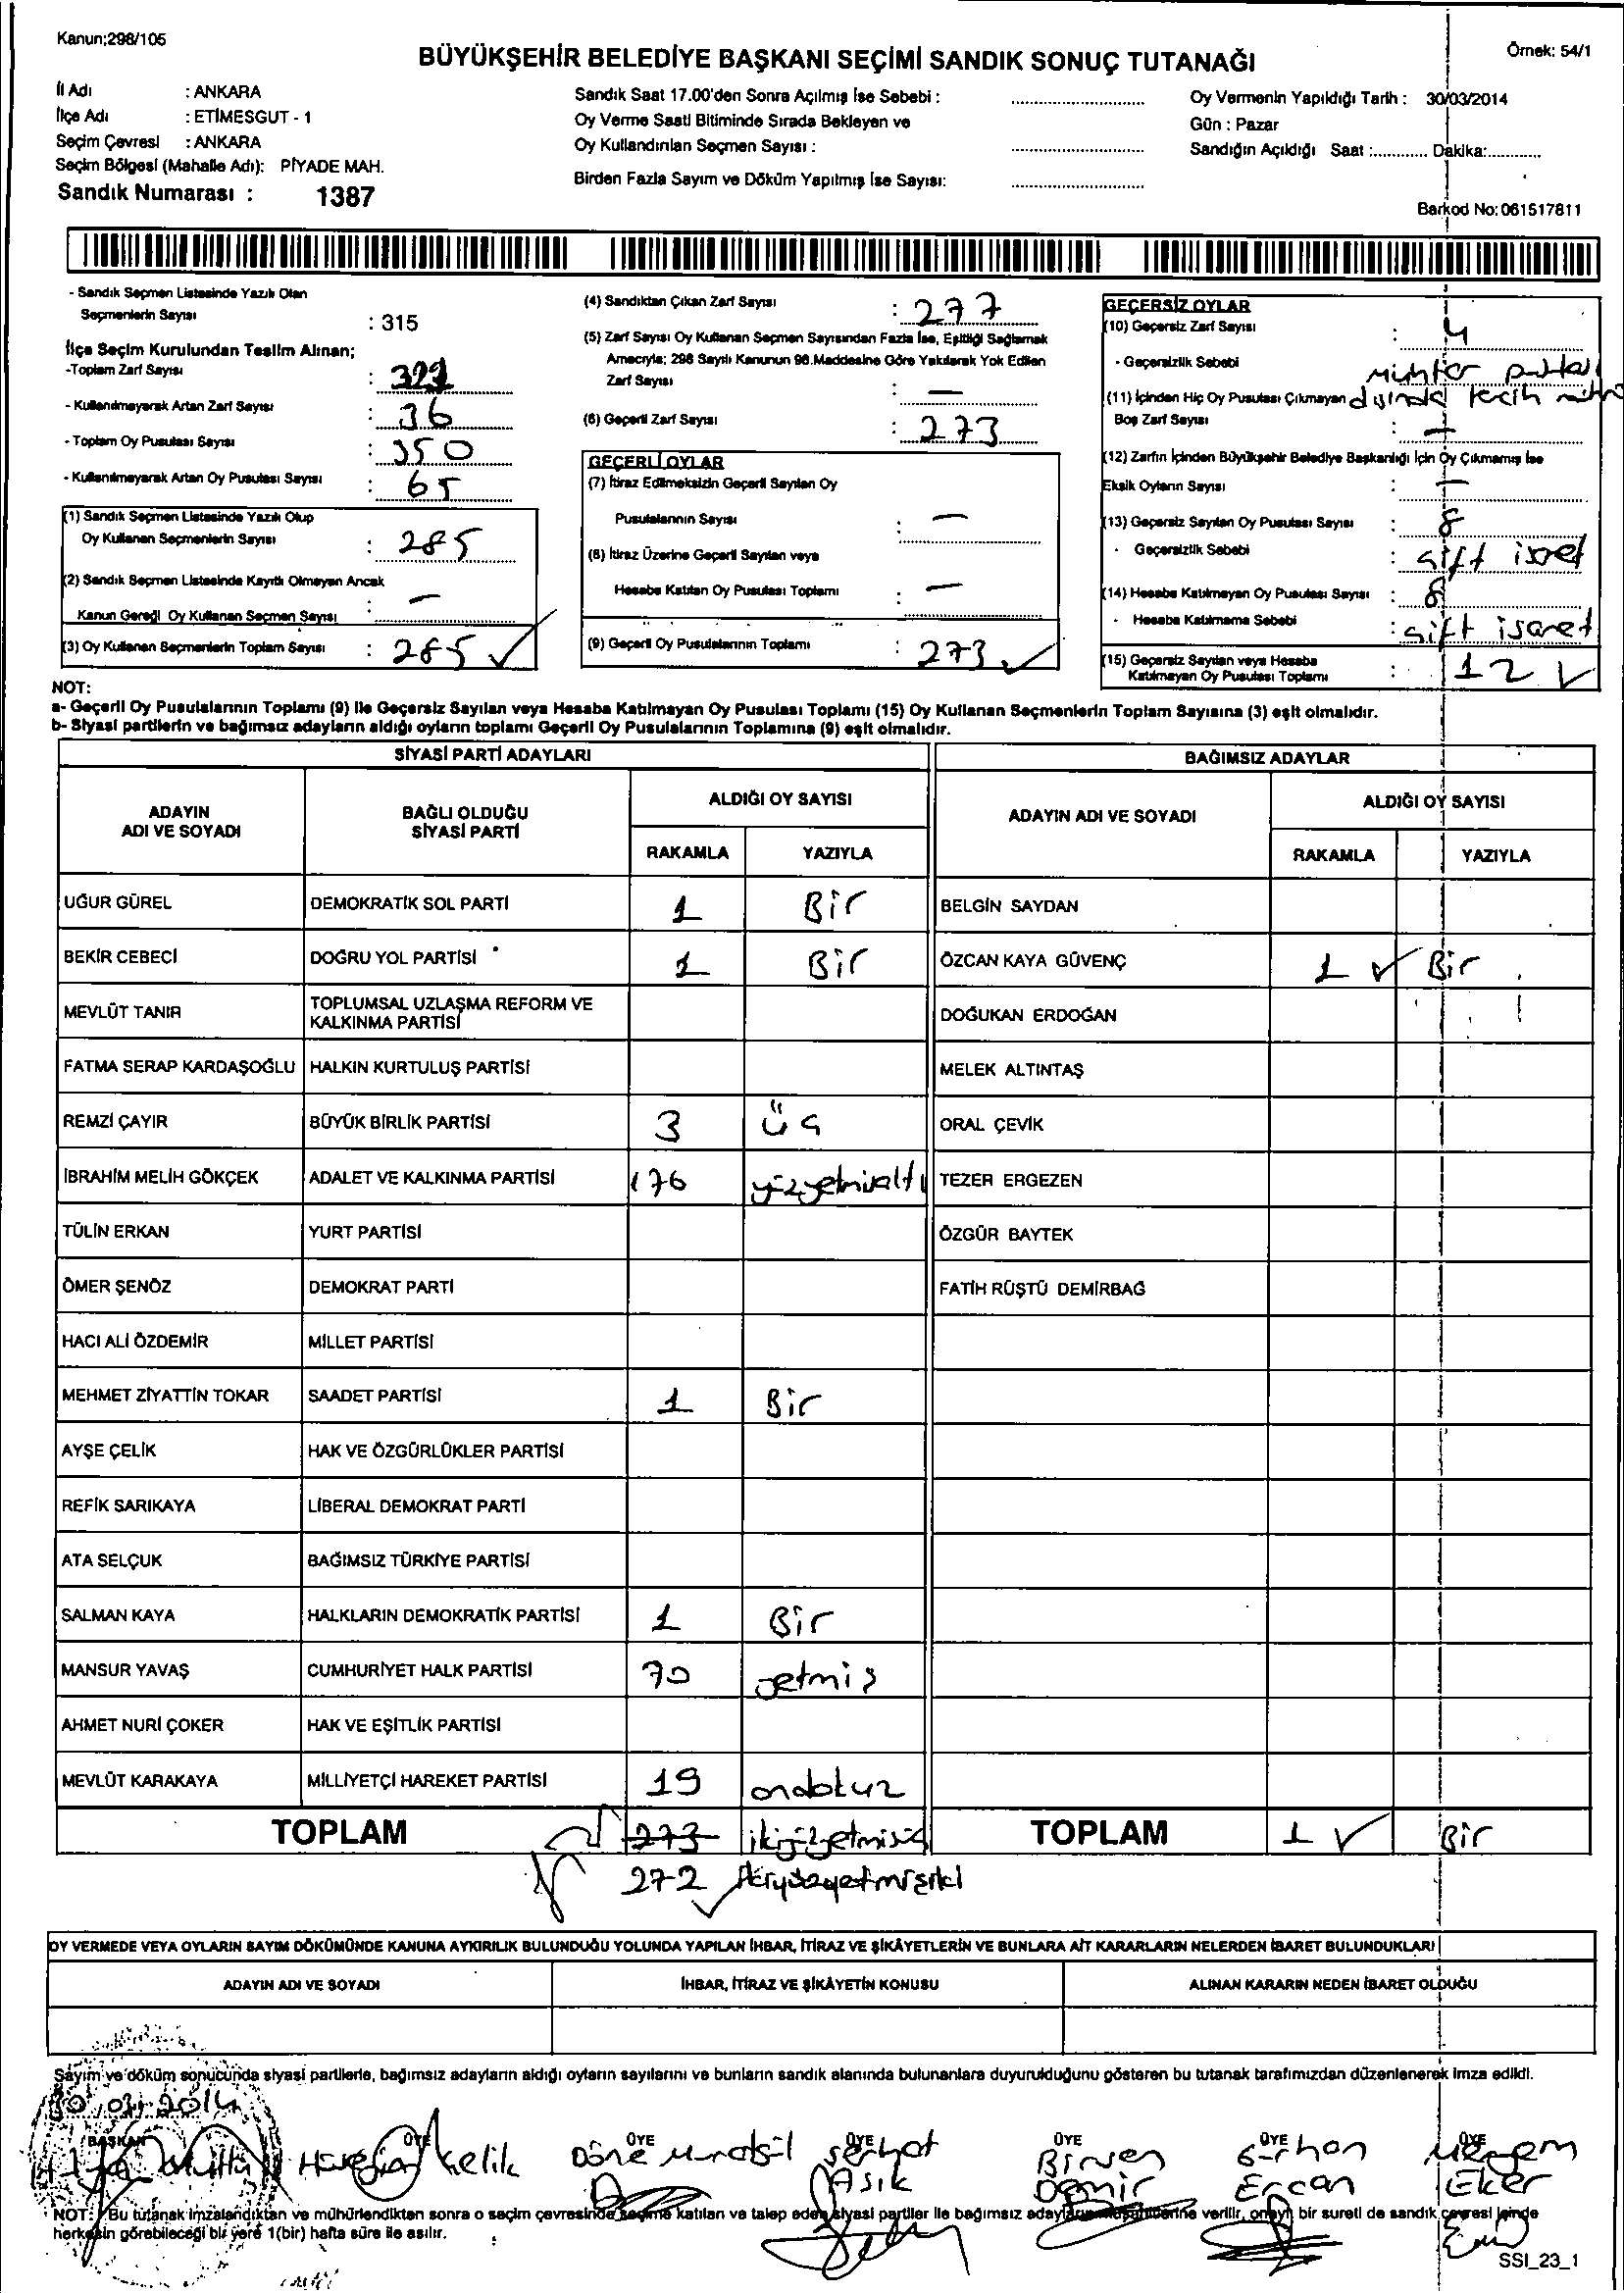 Kanun;298/105
BÜYÜKŞEHİR BELEDİYE BAŞKANI SEÇİMİ SANDIK SONUÇ TUTANAĞI
Örnek: 54/1
İl Adı : ANKARA
İlçe Adı : ETİMESGUT - 1
Seçim Çevresi : ANKARA
Seçim Bölgesi (Mahalle Adı): PİYADE MAH.
Sandık Numarası : 1387
Sandık Saat 17.00'den Sonra Açılmış İse Sebebi :
Oy Verme Saati Bitiminde Sırada Bekleyen ve
Oy Kullandırılan Seçmen Sayısı :
Birden Fazla Sayım ve Döküm Yapılmış İse Sayısı:
Oy Vermenin Yapıldığı Tarih : 30/03/2014
Gün : Pazar
Sandığın Açıldığı Saat :............ Dakika:............
Barkod No: 061517811
- Sandık Seçmen Listesinde Yazılı Olan
Seçmenlerin Sayısı : 315
İlçe Seçim Kurulundan Teslim Alınan;
-Toplam Zarf Sayısı :
- Kullanılmayarak Artan Zarf Sayısı : 36
- Toplam Oy Pusulası Sayısı : 350
- Kullanılmayarak Artan Oy Pusulası Sayısı : 65
(1) Sandık Seçmen Listesinde Yazılı Olup
Oy Kullanan Seçmenlerin Sayısı : 285
(2) Sandık Seçmen Listesinde Kayıtlı Olmayan Ancak
Kanun Gereği Oy Kullanan Seçmen Sayısı : —
(3) Oy Kullanan Seçmenlerin Toplam Sayısı : 285 ✓
(4) Sandıktan Çıkan Zarf Sayısı : 277
(5) Zarf Sayısı Oy Kullanan Seçmen Sayısından Fazla İse, Eşitliği Sağlamak
Amacıyla; 298 Sayılı Kanunun 98.Maddesine Göre Yakılarak Yok Edilen
Zarf Sayısı : —
(6) Geçerli Zarf Sayısı : 273
GEÇERLİ OYLAR
(7) İtiraz Edilmeksizin Geçerli Sayılan Oy
Pusulalarının Sayısı : —
(8) İtiraz Üzerine Geçerli Sayılan veya
Hesaba Katılan Oy Pusulası Toplamı : —
(9) Geçerli Oy Pusulalarının Toplamı : 273 ✓
GEÇERSİZ OYLAR
(10) Geçersiz Zarf Sayısı : 4
- Geçersizlik Sebebi
(11) İçinden Hiç Oy Pusulası Çıkmayan
Boş Zarf Sayısı : —
(12) Zarfın İçinden Büyükşehir Belediye Başkanlığı İçin Oy Çıkmamış İse
Eksik Oyların Sayısı : —
(13) Geçersiz Sayılan Oy Pusulası Sayısı : 8
- Geçersizlik Sebebi : çift işret
(14) Hesaba Katılmayan Oy Pusulası Sayısı : 8
- Hesaba Katılmama Sebebi : çift işaret
(15) Geçersiz Sayılan veya Hesaba
Katılmayan Oy Pusulası Toplamı : 12 ✓
NOT:
a- Geçerli Oy Pusulalarının Toplamı (9) ile Geçersiz Sayılan veya Hesaba Katılmayan Oy Pusulası Toplamı (15) Oy Kullanan Seçmenlerin Toplam Sayısına (3) eşit olmalıdır.
b- Siyasi partilerin ve bağımsız adayların aldığı oyların toplamı Geçerli Oy Pusulalarının Toplamına (9) eşit olmalıdır.
SİYASİ PARTİ ADAYLARI
BAĞIMSIZ ADAYLAR
ADAYIN ADI VE SOYADI
BAĞLI OLDUĞU SİYASİ PARTİ
ALDIĞI OY SAYISI
RAKAMLA YAZIYLA
ADAYIN ADI VE SOYADI
ALDIĞI OY SAYISI
RAKAMLA YAZIYLA
UĞUR GÜREL DEMOKRATİK SOL PARTİ 1 Bir BELGİN SAYDAN
BEKİR CEBECİ DOĞRU YOL PARTİSİ 1 Bir ÖZCAN KAYA GÜVENÇ 1 ✓ Bir
MEVLÜT TANIR TOPLUMSAL UZLAŞMA REFORM VE KALKINMA PARTİSİ DOĞUKAN ERDOĞAN
FATMA SERAP KARDAŞOĞLU HALKIN KURTULUŞ PARTİSİ MELEK ALTINTAŞ
REMZİ ÇAYIR BÜYÜK BİRLİK PARTİSİ 3 üç ORAL ÇEVİK
İBRAHİM MELİH GÖKÇEK ADALET VE KALKINMA PARTİSİ 176 yüzyetmişaltı TEZER ERGEZEN
TÜLİN ERKAN YURT PARTİSİ ÖZGÜR BAYTEK
ÖMER ŞENÖZ DEMOKRAT PARTİ FATİH RÜŞTÜ DEMİRBAĞ
HACI ALİ ÖZDEMİR MİLLET PARTİSİ
MEHMET ZİYATTİN TOKAR SAADET PARTİSİ 1 Bir
AYŞE ÇELİK HAK VE ÖZGÜRLÜKLER PARTİSİ
REFİK SARIKAYA LİBERAL DEMOKRAT PARTİ
ATA SELÇUK BAĞIMSIZ TÜRKİYE PARTİSİ
SALMAN KAYA HALKLARIN DEMOKRATİK PARTİSİ 1 Bir
MANSUR YAVAŞ CUMHURİYET HALK PARTİSİ 70 yetmiş
AHMET NURİ ÇOKER HAK VE EŞİTLİK PARTİSİ
MEVLÜT KARAKAYA MİLLİYETÇİ HAREKET PARTİSİ 19 ondokuz
TOPLAM 273 ikiyüzyetmişüç TOPLAM 1 ✓ Bir
272 ikiyüzyetmişiki
OY VERMEDE VEYA OYLARIN SAYIM DÖKÜMÜNDE KANUNA AYKIRILIK BULUNDUĞU YOLUNDA YAPILAN İHBAR, İTİRAZ VE ŞİKÂYETLERİN VE BUNLARA AİT KARARLARIN NELERDEN İBARET BULUNDUKLARI
ADAYIN ADI VE SOYADI İHBAR, İTİRAZ VE ŞİKÂYETİN KONUSU ALINAN KARARIN NEDEN İBARET OLDUĞU
Sayım ve döküm sonucunda siyasi partilerle, bağımsız adayların aldığı oyların sayılarını ve bunların sandık alanında bulunanlara duyurulduğunu gösteren bu tutanak tarafımızdan düzenlenerek imza edildi.
30.03.2014
BAŞKAN ÜYE ÜYE ÜYE ÜYE ÜYE ÜYE
Çelik Döne Serhat Birsen Erhan Meryem
Aşık Demir Ercan Eker
NOT: Bu tutanak imzalandıktan ve mühürlendikten sonra o seçim çevresinde seçime katılan ve talep eden siyasi partiler ile bağımsız adayların müşahitlerine verilir, onaylı bir sureti de sandık çevresi içinde
herkesin görebileceği bir yere 1(bir) hafta süre ile asılır.
SSI_23_1